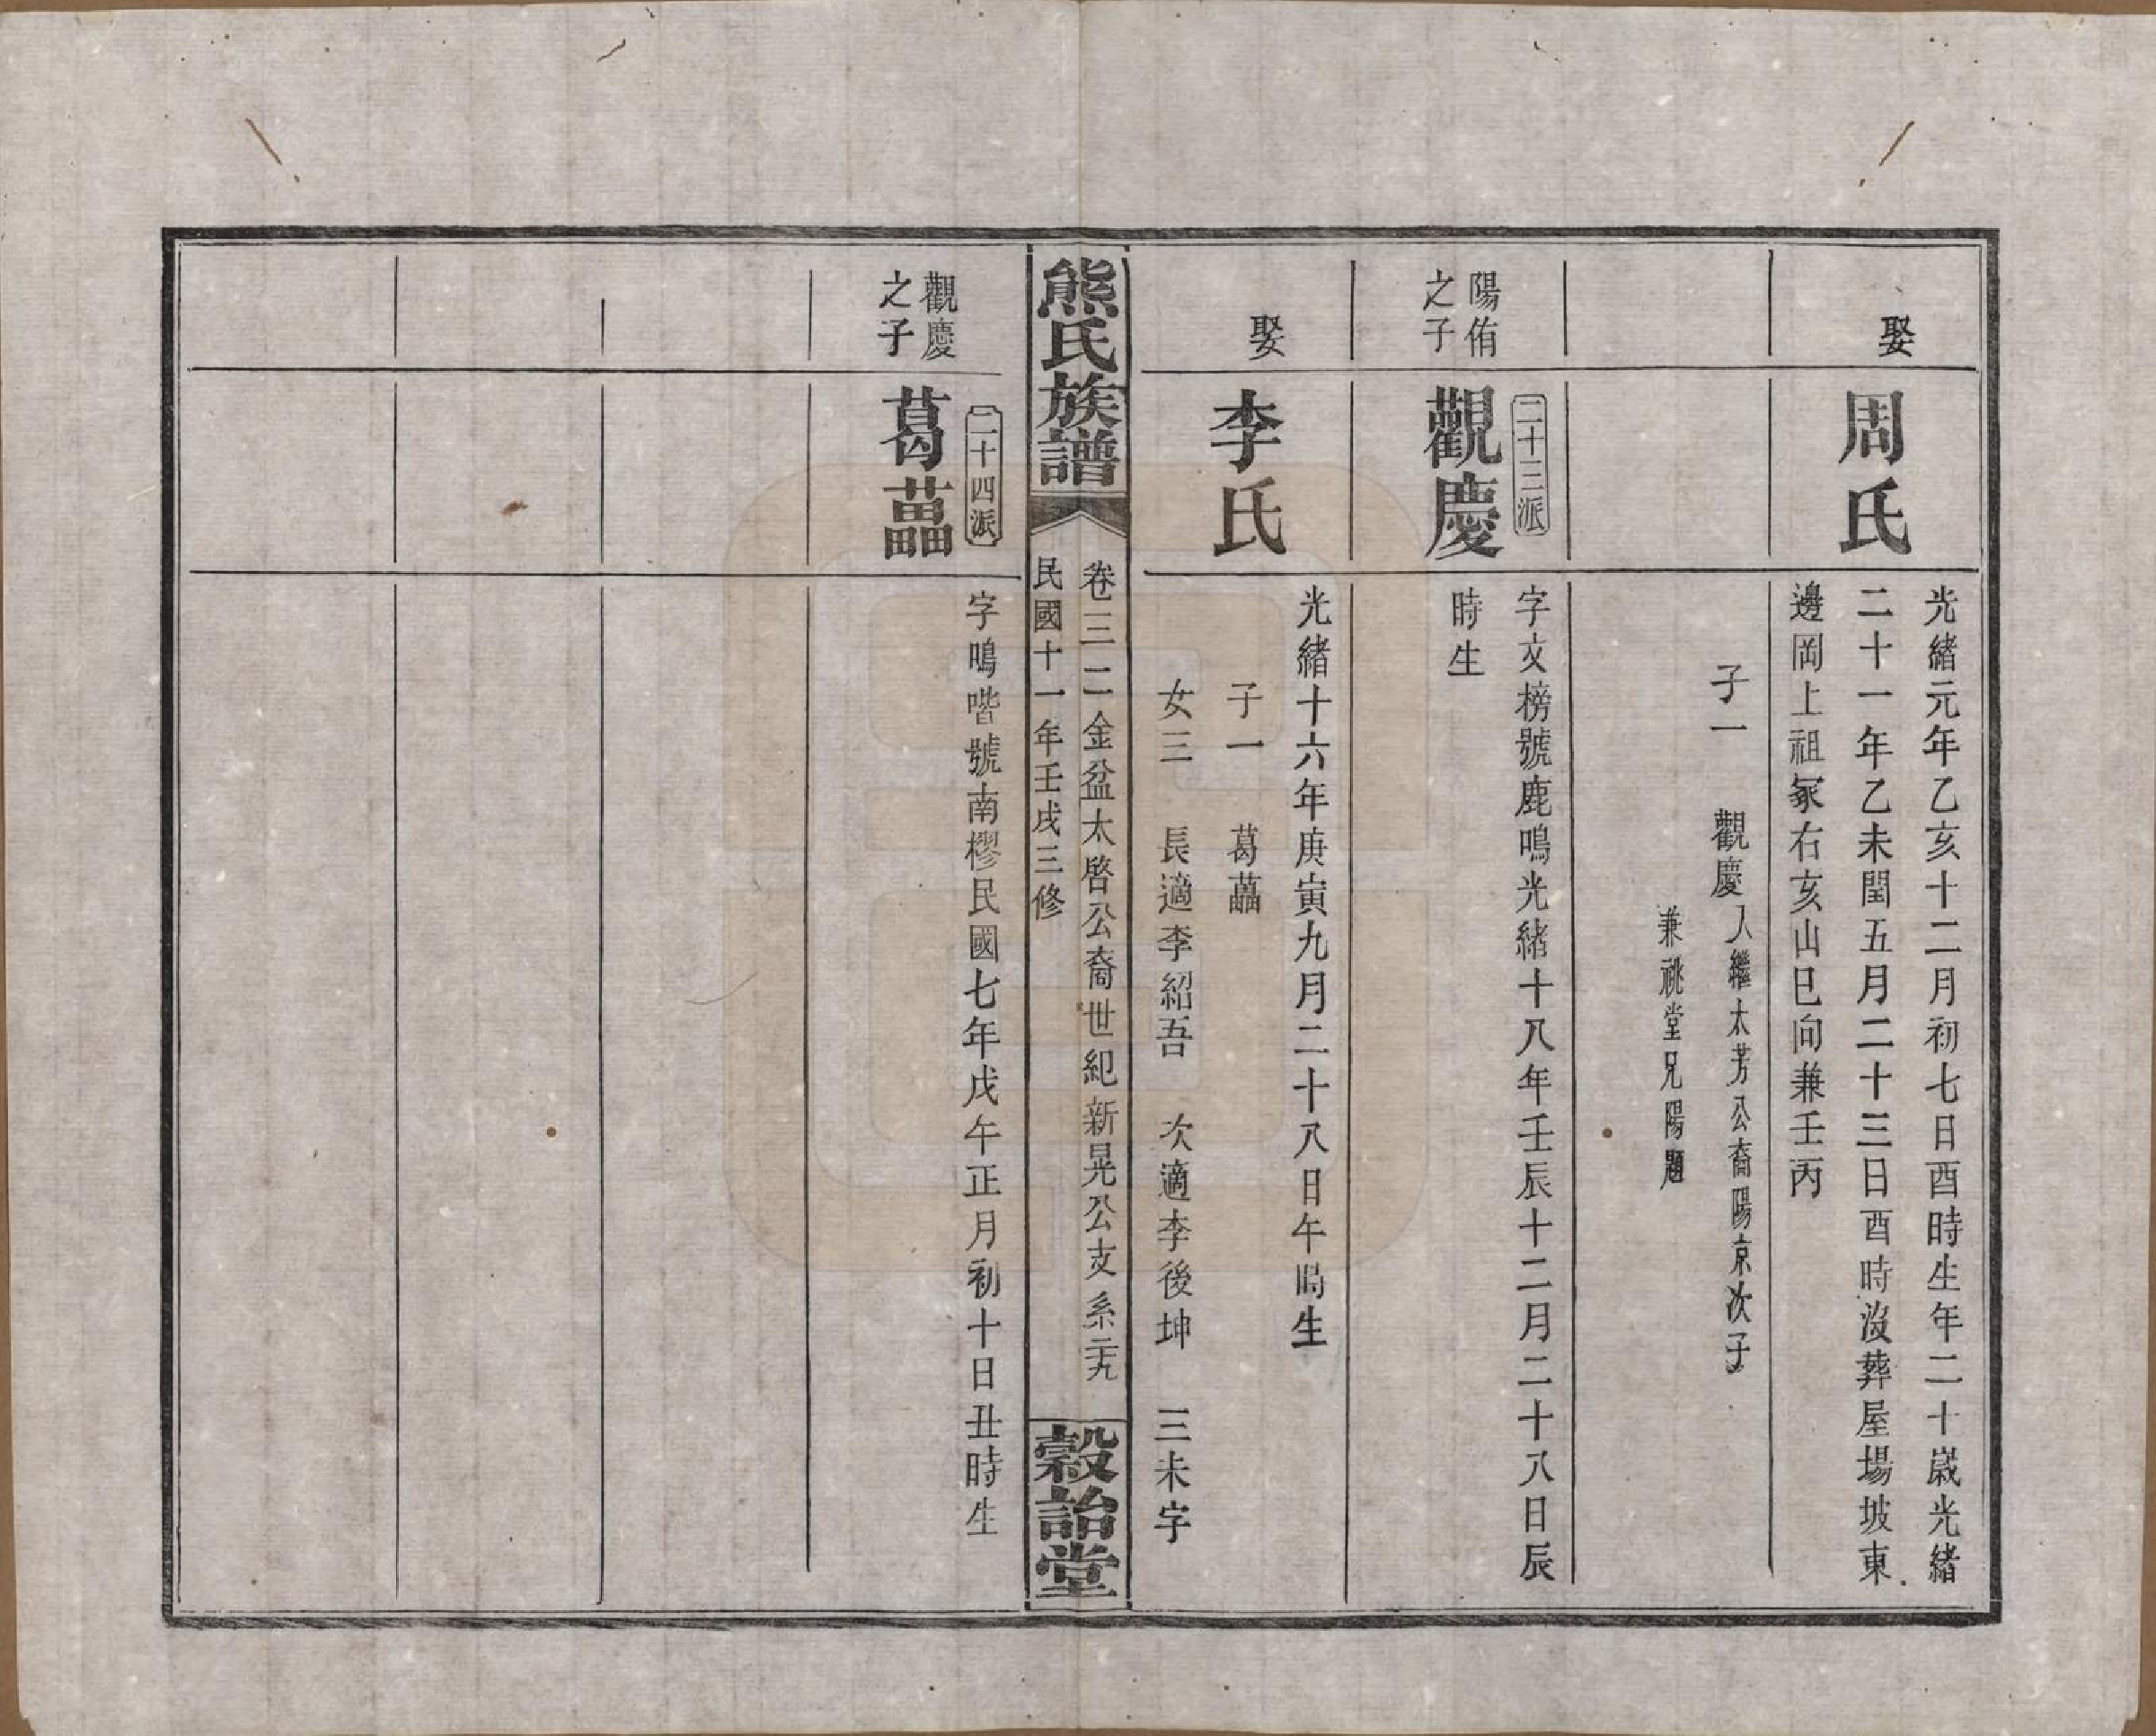 娶
周氏
光緒元年乙亥十二月初七日酉時生年二十歲光緒
二十一年乙未閏五月二十三日酉時沒葬屋場坡東
邊岡上祖冢右亥山巳向兼壬丙
子一　觀慶
入繼太芳公裔陽京次子
兼祧堂兄陽題
陽侑
之子
二十三派
觀慶
字文榜號鹿鳴光緒十八年壬辰十二月二十八日辰
時生
娶
李氏
光緒十六年庚寅九月二十八日午時生
子一　葛藟
女三　長適李紹吾　次適李後坤　三未字
熊氏族譜
卷三二金盆太啓公裔世紀新晃公支系
民國十一年壬戌三修
穀詒堂
觀慶
之子
二十四派
葛藟
字鳴喈號南樛民國七年戊午正月初十日丑時生